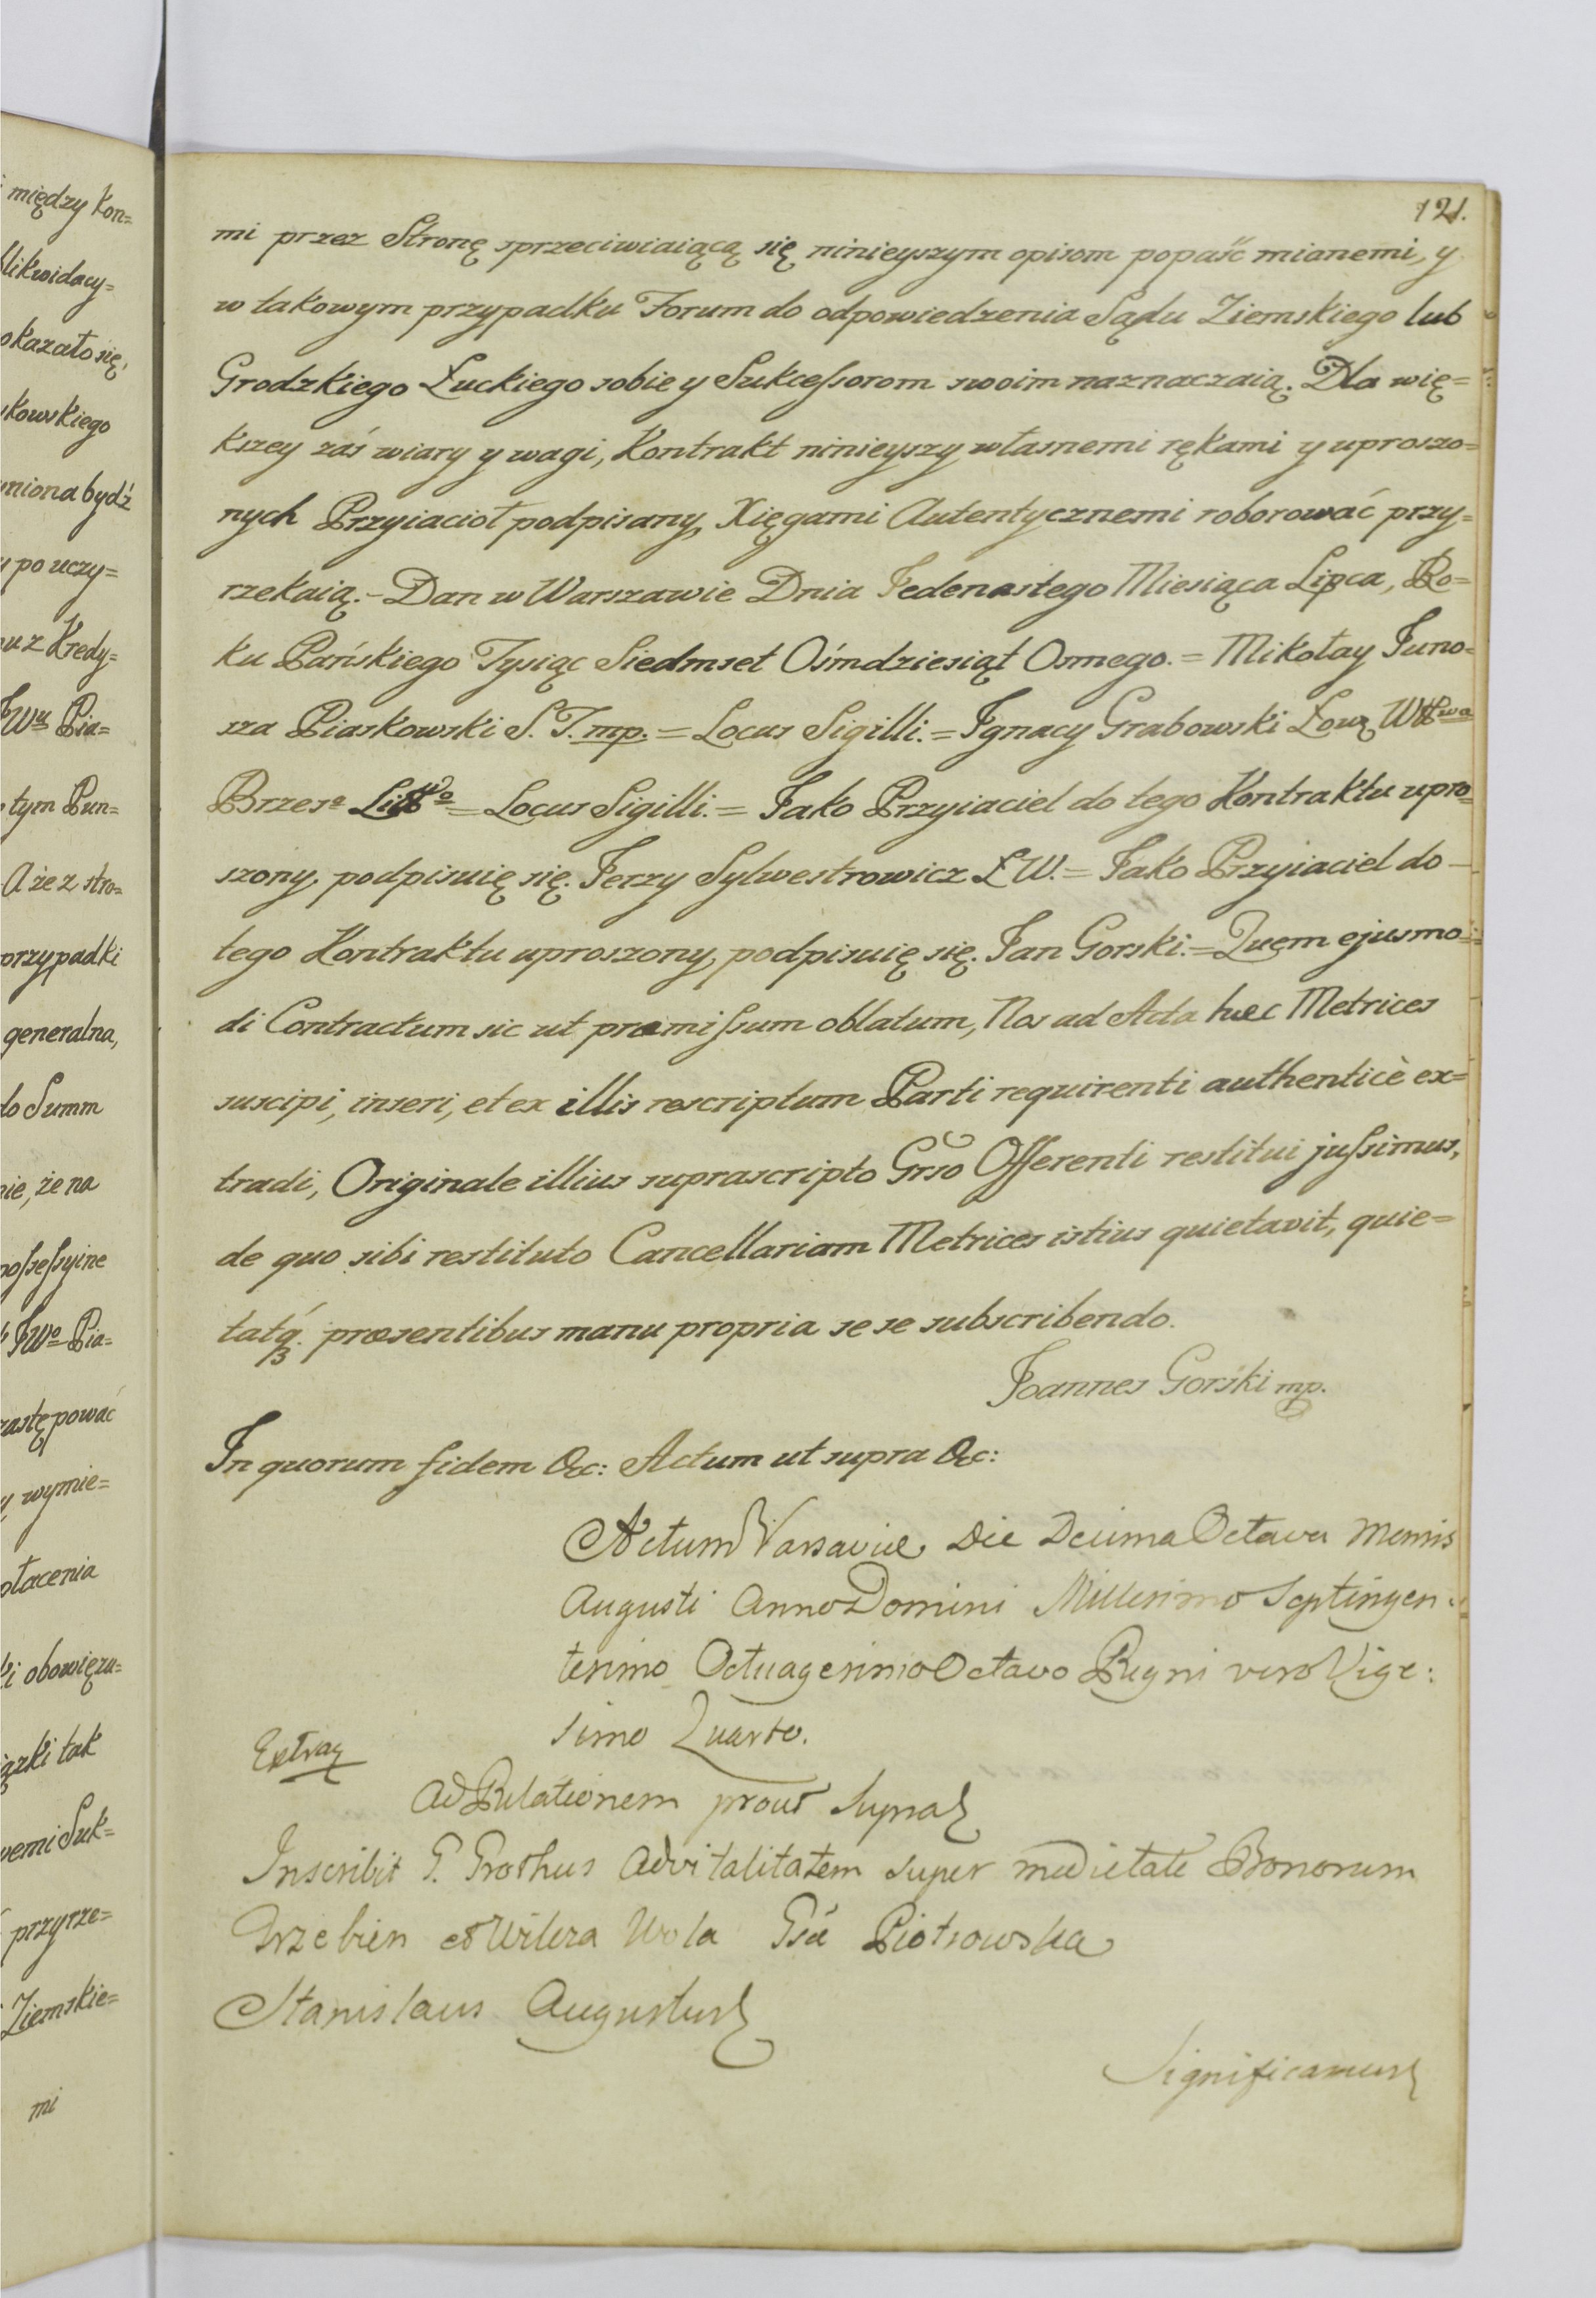 między Kon=
likwidacy=
okazało się,
kowskiego
niona bydź
po uczy=
uz Kredy=
JWu Pia=
tym Pun=
A że z stro=
przypadki
generalna,
do Summ
nie, że na
possessyine
JWo Pia=
zastępować
y wymie=
płacenia
ki obowięzu=
iązki tak
wemi Suk=
przyrze=
Ziemskie=
mi
121.
mi przez Stronę sprzeciwiaiącą się ninieyszym opisom popaść mianemi, y
w takowym przypadku Forum do odpowiedzenia Sądu Ziemskiego lub
Grodzkiego Łuckiego sobie y Sukcessorom swoim naznaczaią. Dla wię=
kszey zaś wiary y wagi, Kontrakt ninieyszy własnemi rękami y uproszo=
nych Przyiacioł podpisany, Xięgami Autentycznemi roborować przy=
rzekaią.- Dan w Warszawie Dnia Jedenastego Miesiąca Lipca, Ro=
ku Pańskiego Tysiąc Siedmset Ośmdziesiąt Osmego. = Mikołay Juno=
sza Piaskowski S. J. mp. = Locus Sigilli. = Ignacy Grabowski Łow. Wttwa
Brzeso Littwo = Locus Sigilli. = Jako Przyiaciel do tego Kontraktu upro=
szony, podpisuię się. Jerzy Sylwestrowicz Ł W. = Jako Przyiaciel do
tego Kontraktu uproszony, podpisuię się. Jan Gorski. = Quem ejusmo=
di Contractum sic ut præmissum oblatum, Nos ad Acta hæc Metrices
suscipi, inseri, et ex illis rescriptum Parti requirenti authenticè ex=
tradi, Originale illius suprascripto Grso Offerenti restitui jussimus,
de quo sibi restituto Cancellariam Metrices istius quietavit, quie=
tatq3. præsentibus manu propria se se subscribendo.
Joannes Gorski mp.
In quorum fidem &c: Actum ut supra &c:
Actum Varsaviæ Die Decima Octava Mensis
Augusti Anno Domini Millesimo Septingen=
tesimo Octuagesimo Octavo Regni vero Vige:
simo Quarto.
Ad Relationem prout supra
Inscribit G. Prothus Advitalitatem super medietate Bonorum
Grzebien et Wilcza Wola Gsæ Piotrowska
Stanislaus Augustus
Significamus